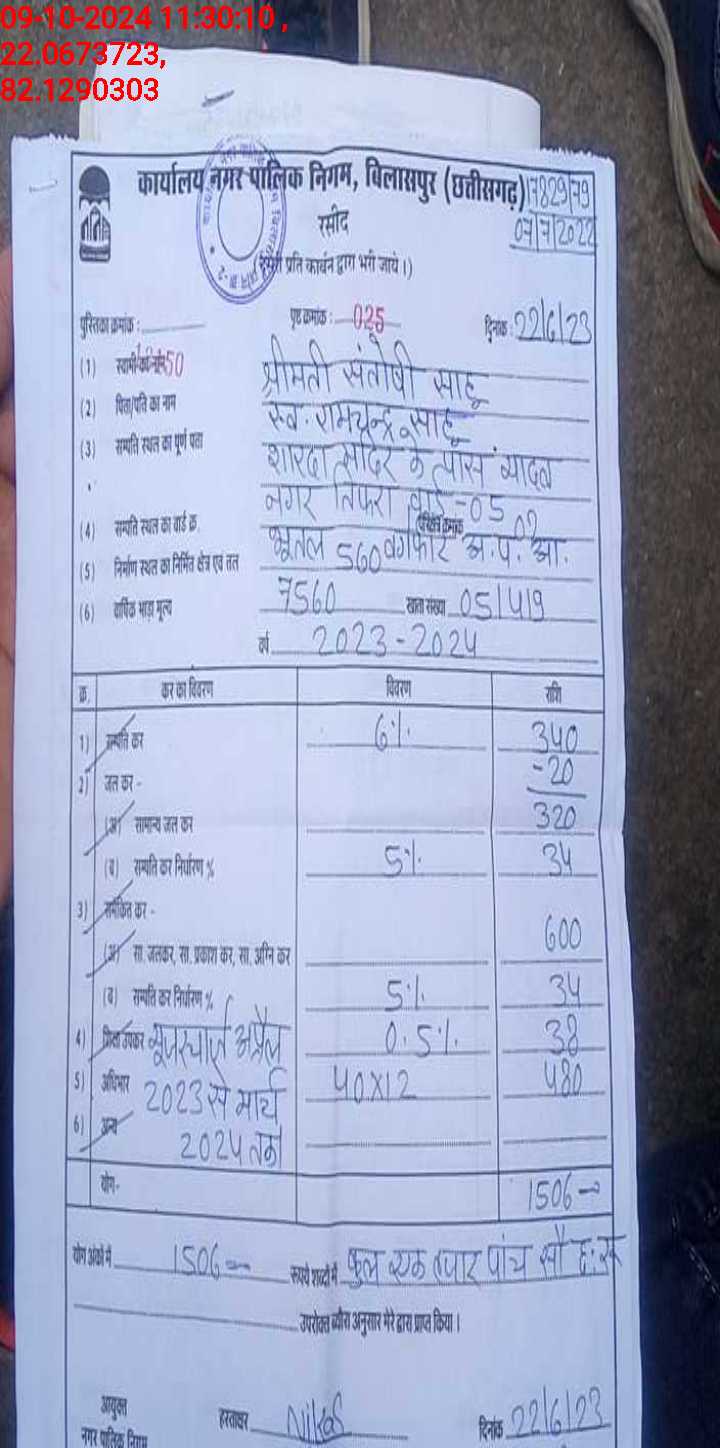 09-10-2024 11:30:10 ,
22.0673723,
82.1290303
कार्यालय नगर पालिक निगम, बिलासपुर (छत्तीसगढ़) 17829/79
रसीद 07/7/2022
प्रति कार्बन द्वारा भरी जाये।)
पुस्तिका क्रमांक : पृष्ठ क्रमांक : 025 दिनांक : 22/6/23
(1) स्वामी का नाम श्रीमती संतोषी साहू
(2) पिता/पति का नाम स्व. रामचन्द्र साहू
(3) सम्पति स्थल का पूर्ण पता शारदा मंदिर के पास यादव
नगर तिफरा वार्ड-05
(4) सम्पति स्थल का वार्ड क्र. 02
(5) निर्माण स्थल का निर्मित क्षेत्र एवं तल भूतल 560 वर्गफीट अ.प.आ.
(6) वार्षिक भाड़ा मूल्य 7560 खाता संख्या 05/419
वर्ष 2023-2024
क्र. कर का विवरण विवरण राशि
1) सम्पति कर 6% 340
-20
2) जल कर -
320
(अ) सामान्य जल कर
(ब) सम्पति कर निर्धारण % 5% 34
3) समेकित कर -
(अ) सा. जलकर, सा. प्रकाश कर, सा. अग्नि कर 600
(ब) सम्पति कर निर्धारण % 5% 34
4) शिक्षा उपकर यूजरचार्ज अप्रैल 0.5% 38
5) अधिभार 2023 से मार्च 40X12 480
6) अन्य 2024 तक
योग- 1506
योग अंको में 1506 रूपये शब्दों में कुल एक हजार पांच सौ छः रू
उपरोक्त ब्यौरा अनुसार मेरे द्वारा प्राप्त किया।
आयुक्त
नगर पालिक निगम हस्ताक्षर Nikas दिनांक 22/6/23